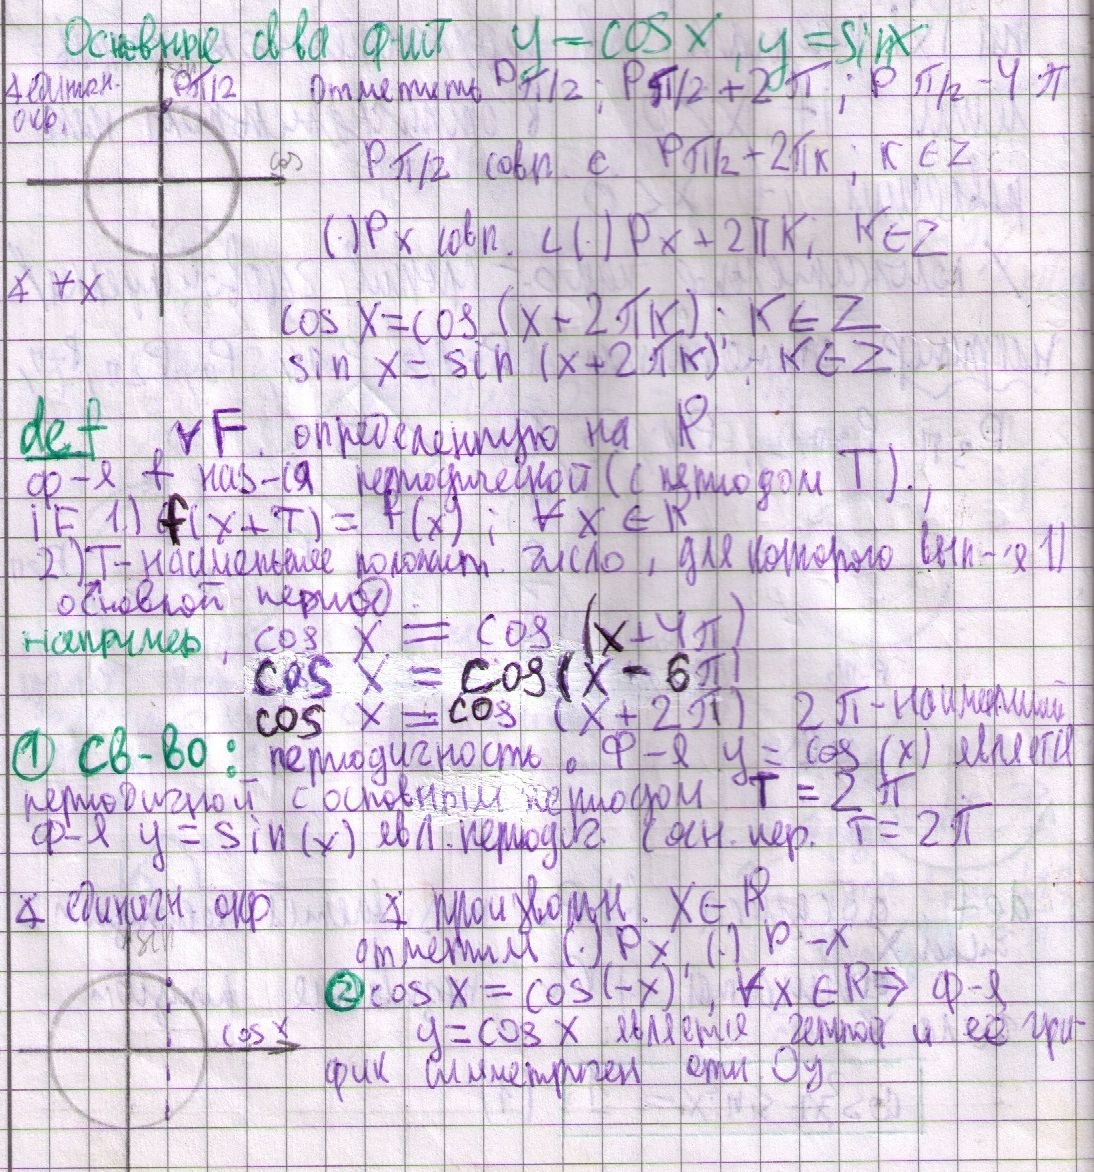 Основные св-ва ф-ий y = cos x, y = sin x
∡ единич. P π/2 Отметить P π/2 ; P π/2 + 2π ; P π/2 - 4π
окр.
cos
P π/2 совп. с P π/2 + 2πк ; к ∈ Z
(·) Px совп. с (·) Px + 2πк; к ∈ Z
∡ ∀x
cos x = cos (x + 2πк); к ∈ Z
sin x = sin (x + 2πк); к ∈ Z
def ∀F. определенную на R
ф-я f наз-ся периодической (с периодом T).,
iF 1) f(x+T) = f(x) ; ∀x ∈ R
2) T - наименьшее положит. число, для которого вып-ся 1)
основной период.
например, cos x = cos (x + 4π)
cos x = cos (x - 6π)
cos x = cos (x + 2π) 2π - наименьший
① св-во: периодичность. Ф-я y = cos (x) является
периодичной с основным периодом T = 2π
ф-я y = sin (x) явл. периодич. с осн. пер. T = 2π
∡ единичн. окр ∡ произвольн. x ∈ R
sin отметим (·) Px, (·) P -x
② cos x = cos (-x) ; ∀x ∈ R ⇒ ф-я
cos x y = cos x является четной и её гра-
фик симметричен отн Oy